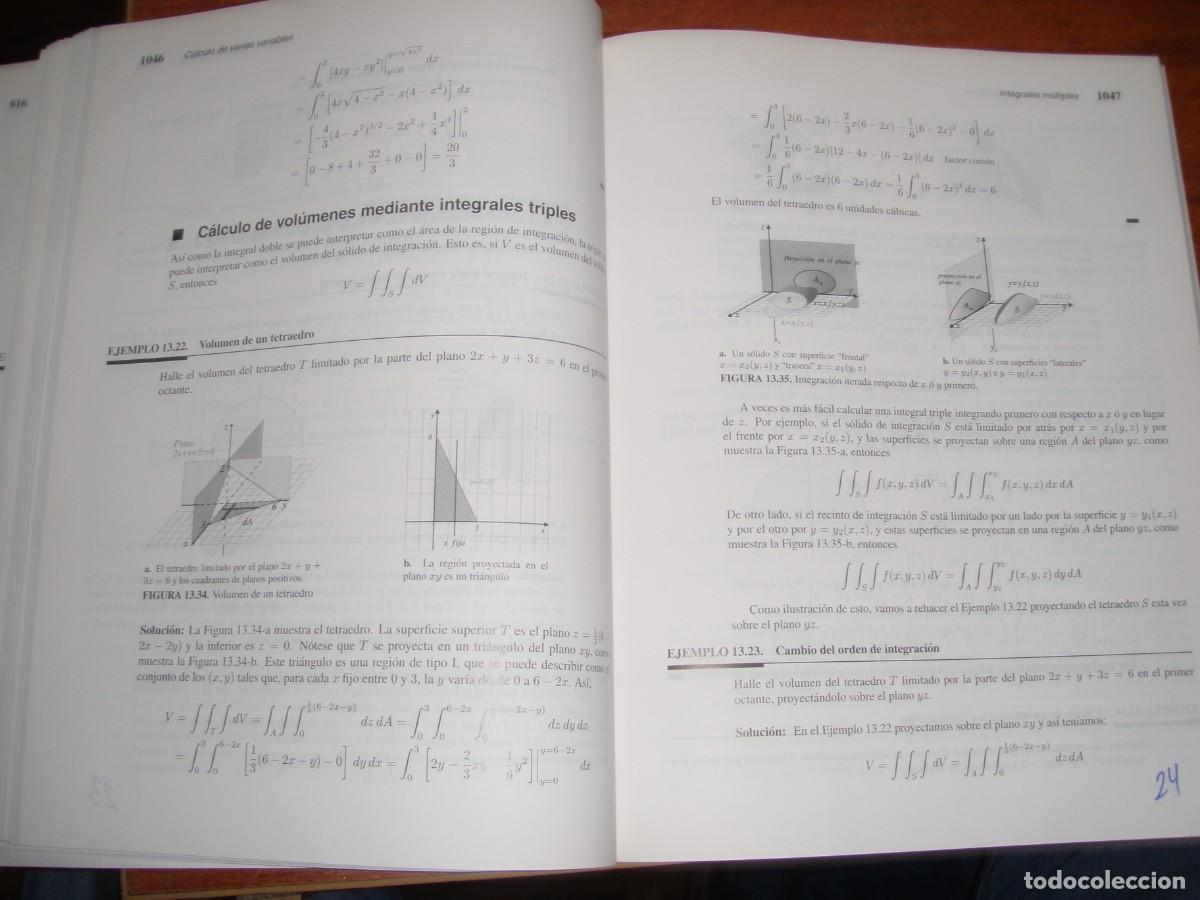 916
1046 Cálculo de varias variables
= ∫₀² [4xy − xy²]|
y=0
dx
= ∫₀² [4x√4 − x² − x(4 − x²)] dx
= [−4/3(4 − x²)^3/2 − 2x² + 1/4 x⁴]|₀²
= [0 − 8 + 4 + 32/3 + 0 − 0] = 20/3
■ Cálculo de volúmenes mediante integrales triples
Así como la integral doble se puede interpretar como el área de la región de integración, la
puede interpretar como el volumen del sólido de integración. Esto es, si V es el volumen del
S, entonces
V = ∫∫_S∫ dV
EJEMPLO 13.22. Volumen de un tetraedro
Halle el volumen del tetraedro T limitado por la parte del plano 2x + y + 3z = 6 en el
octante.
Plano
z
2
6 y
3
dA
x
y
6
3
x
x fijo
a. El tetraedro limitado por el plano 2x + y +
3z = 6 y los cuadrantes de planos positivos.
b. La región proyectada en el
plano xy es un triángulo
FIGURA 13.34. Volumen de un tetraedro
Solución: La Figura 13.34-a muestra el tetraedro. La superficie superior T es el plano z = 1/3(6−
2x − 2y) y la inferior es z = 0. Nótese que T se proyecta en un triángulo del plano xy,
muestra la Figura 13.34-b. Este triángulo es una región de tipo I, que se puede describir como
conjunto de los (x, y) tales que, para cada x fijo entre 0 y 3, la y varía desde 0 a 6 − 2x. Así,
V = ∫∫_T∫ dV = ∫_A∫∫₀^1/3(6−2x−y) dz dA = ∫₀³∫₀^6−2x∫₀^1/3(6−2x−y) dz dy dx
= ∫₀³∫₀^6−2x [1/3(6 − 2x − y) − 0] dy dx = ∫₀³ [2y − 2/3xy − 1/6y²]|_y=0^y=6−2x dx
23
Integrales múltiples 1047
= ∫₀³ [2(6 − 2x) − 2/3x(6 − 2x) − 1/6(6 − 2x)² − 0] dx
= ∫₀³ 1/6(6 − 2x)[12 − 4x − (6 − 2x)] dx factor común
= 1/6 ∫₀³ (6 − 2x)(6 − 2x) dx = 1/6 ∫₀³ (6 − 2x)² dx = 6
El volumen del tetraedro es 6 unidades cúbicas.
z
Proyección en el plano
S
y
x
z
proyección en el
y=y₁(x,z)
S
y
x
a. Un sólido S con superficie "frontal"
x = x₂(y, z) y "trasera" x = x₁(y, z)
b. Un sólido S con superficies "laterales"
y = y₂(x, y) e y = y₁(x, z)
FIGURA 13.35. Integración iterada respecto de x ó y primero.
A veces es más fácil calcular una integral triple integrando primero con respecto a x ó y en lugar
de z. Por ejemplo, si el sólido de integración S está limitado por atrás por x = x₁(y, z) y por
el frente por x = x₂(y, z), y las superficies se proyectan sobre una región A del plano yz, como
muestra la Figura 13.35-a, entonces
∫∫_S∫ f(x, y, z) dV = ∫_A∫∫_x₁^x₂ f(x, y, z) dx dA
De otro lado, si el recinto de integración S está limitado por un lado por la superficie y = y₁(x, z)
y por el otro por y = y₂(x, z), y estas superficies se proyectan en una región A del plano yz, como
muestra la Figura 13.35-b, entonces
∫∫_S∫ f(x, y, z) dV = ∫_A∫∫_y₁^y₂ f(x, y, z) dy dA
Como ilustración de esto, vamos a rehacer el Ejemplo 13.22 proyectando el tetraedro S esta vez
sobre el plano yz.
EJEMPLO 13.23. Cambio del orden de integración
Halle el volumen del tetraedro T limitado por la parte del plano 2x + y + 3z = 6 en el primer
octante, proyectándolo sobre el plano yz.
Solución: En el Ejemplo 13.22 proyectamos sobre el plano xy y así teníamos:
V = ∫∫_S∫ dV = ∫_A∫∫₀^1/3(6−2x−y) dz dA
24
todocoleccion